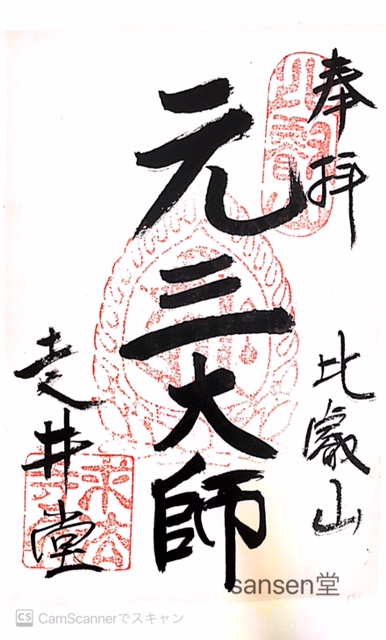 奉拝
比叡山
元三大師
走井堂
比叡山
求法寺
走井堂
sansen堂
CS CamScannerでスキャン